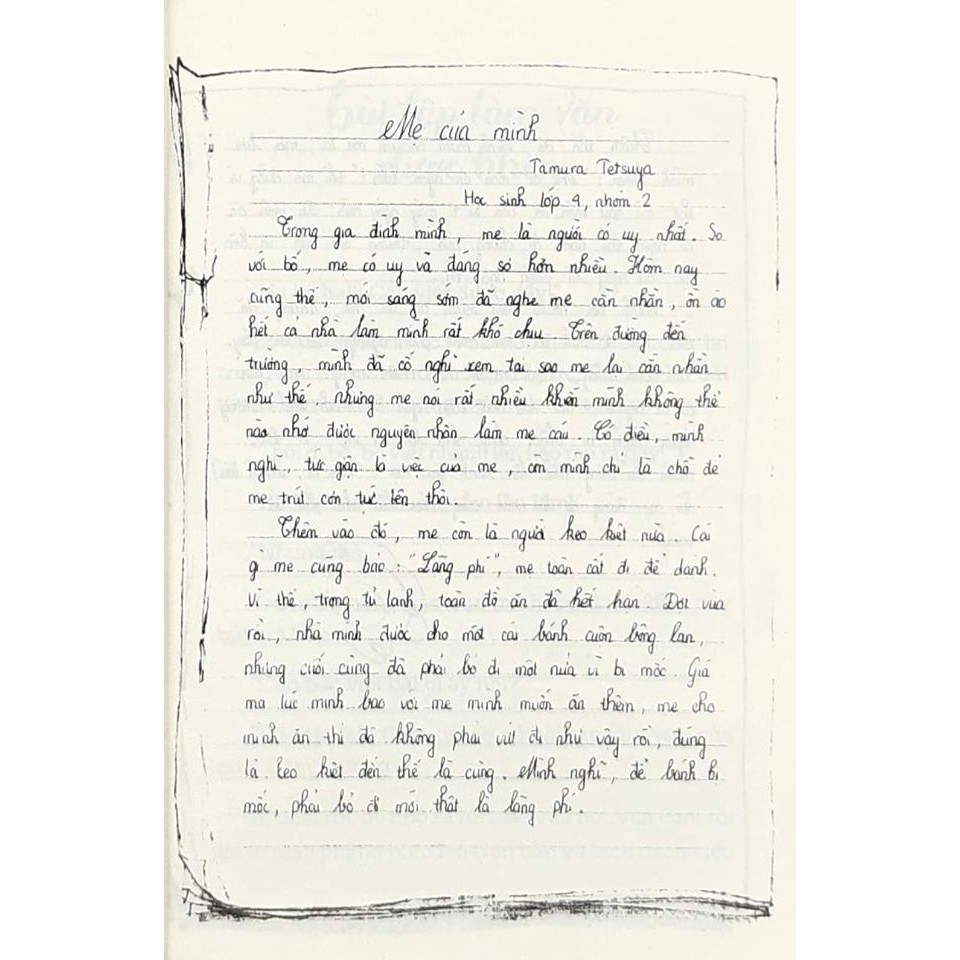 Mẹ của mình
Tamura Tetsuya
Học sinh lớp 4, nhóm 2
Trong gia đình mình, mẹ là người có uy nhất. So
với bố, mẹ có uy và đáng sợ hơn nhiều. Hôm nay
cũng thế, mới sáng sớm đã nghe mẹ cằn nhằn, ồn ào
hết cả nhà làm mình rất khó chịu. Trên đường đến
trường, mình đã cố nghĩ xem tại sao mẹ lại cằn nhằn
như thế, nhưng mẹ nói rất nhiều khiến mình không thể
nào nhớ được nguyên nhân làm mẹ cáu. Có điều, mình
nghĩ, tức giận là việc của mẹ, còn mình chỉ là chỗ để
mẹ trút cơn tức lên thôi.
Thêm vào đó, mẹ còn là người keo kiệt nữa. Cái
gì mẹ cũng bảo: "Lãng phí", mẹ toàn cất đi để dành.
Vì thế, trong tủ lạnh, toàn đồ ăn đã hết hạn. Đợt vừa
rồi, nhà mình được cho một cái bánh cuộn bông lan,
nhưng cuối cùng đã phải bỏ đi một nửa vì bị mốc. Giá
mà lúc mình bảo với mẹ mình muốn ăn thêm, mẹ cho
mình ăn thì đã không phải vứt đi như vậy rồi, đúng
là keo kiệt đến thế là cùng. Mình nghĩ, để bánh bị
mốc, phải bỏ đi mới thật là lãng phí.